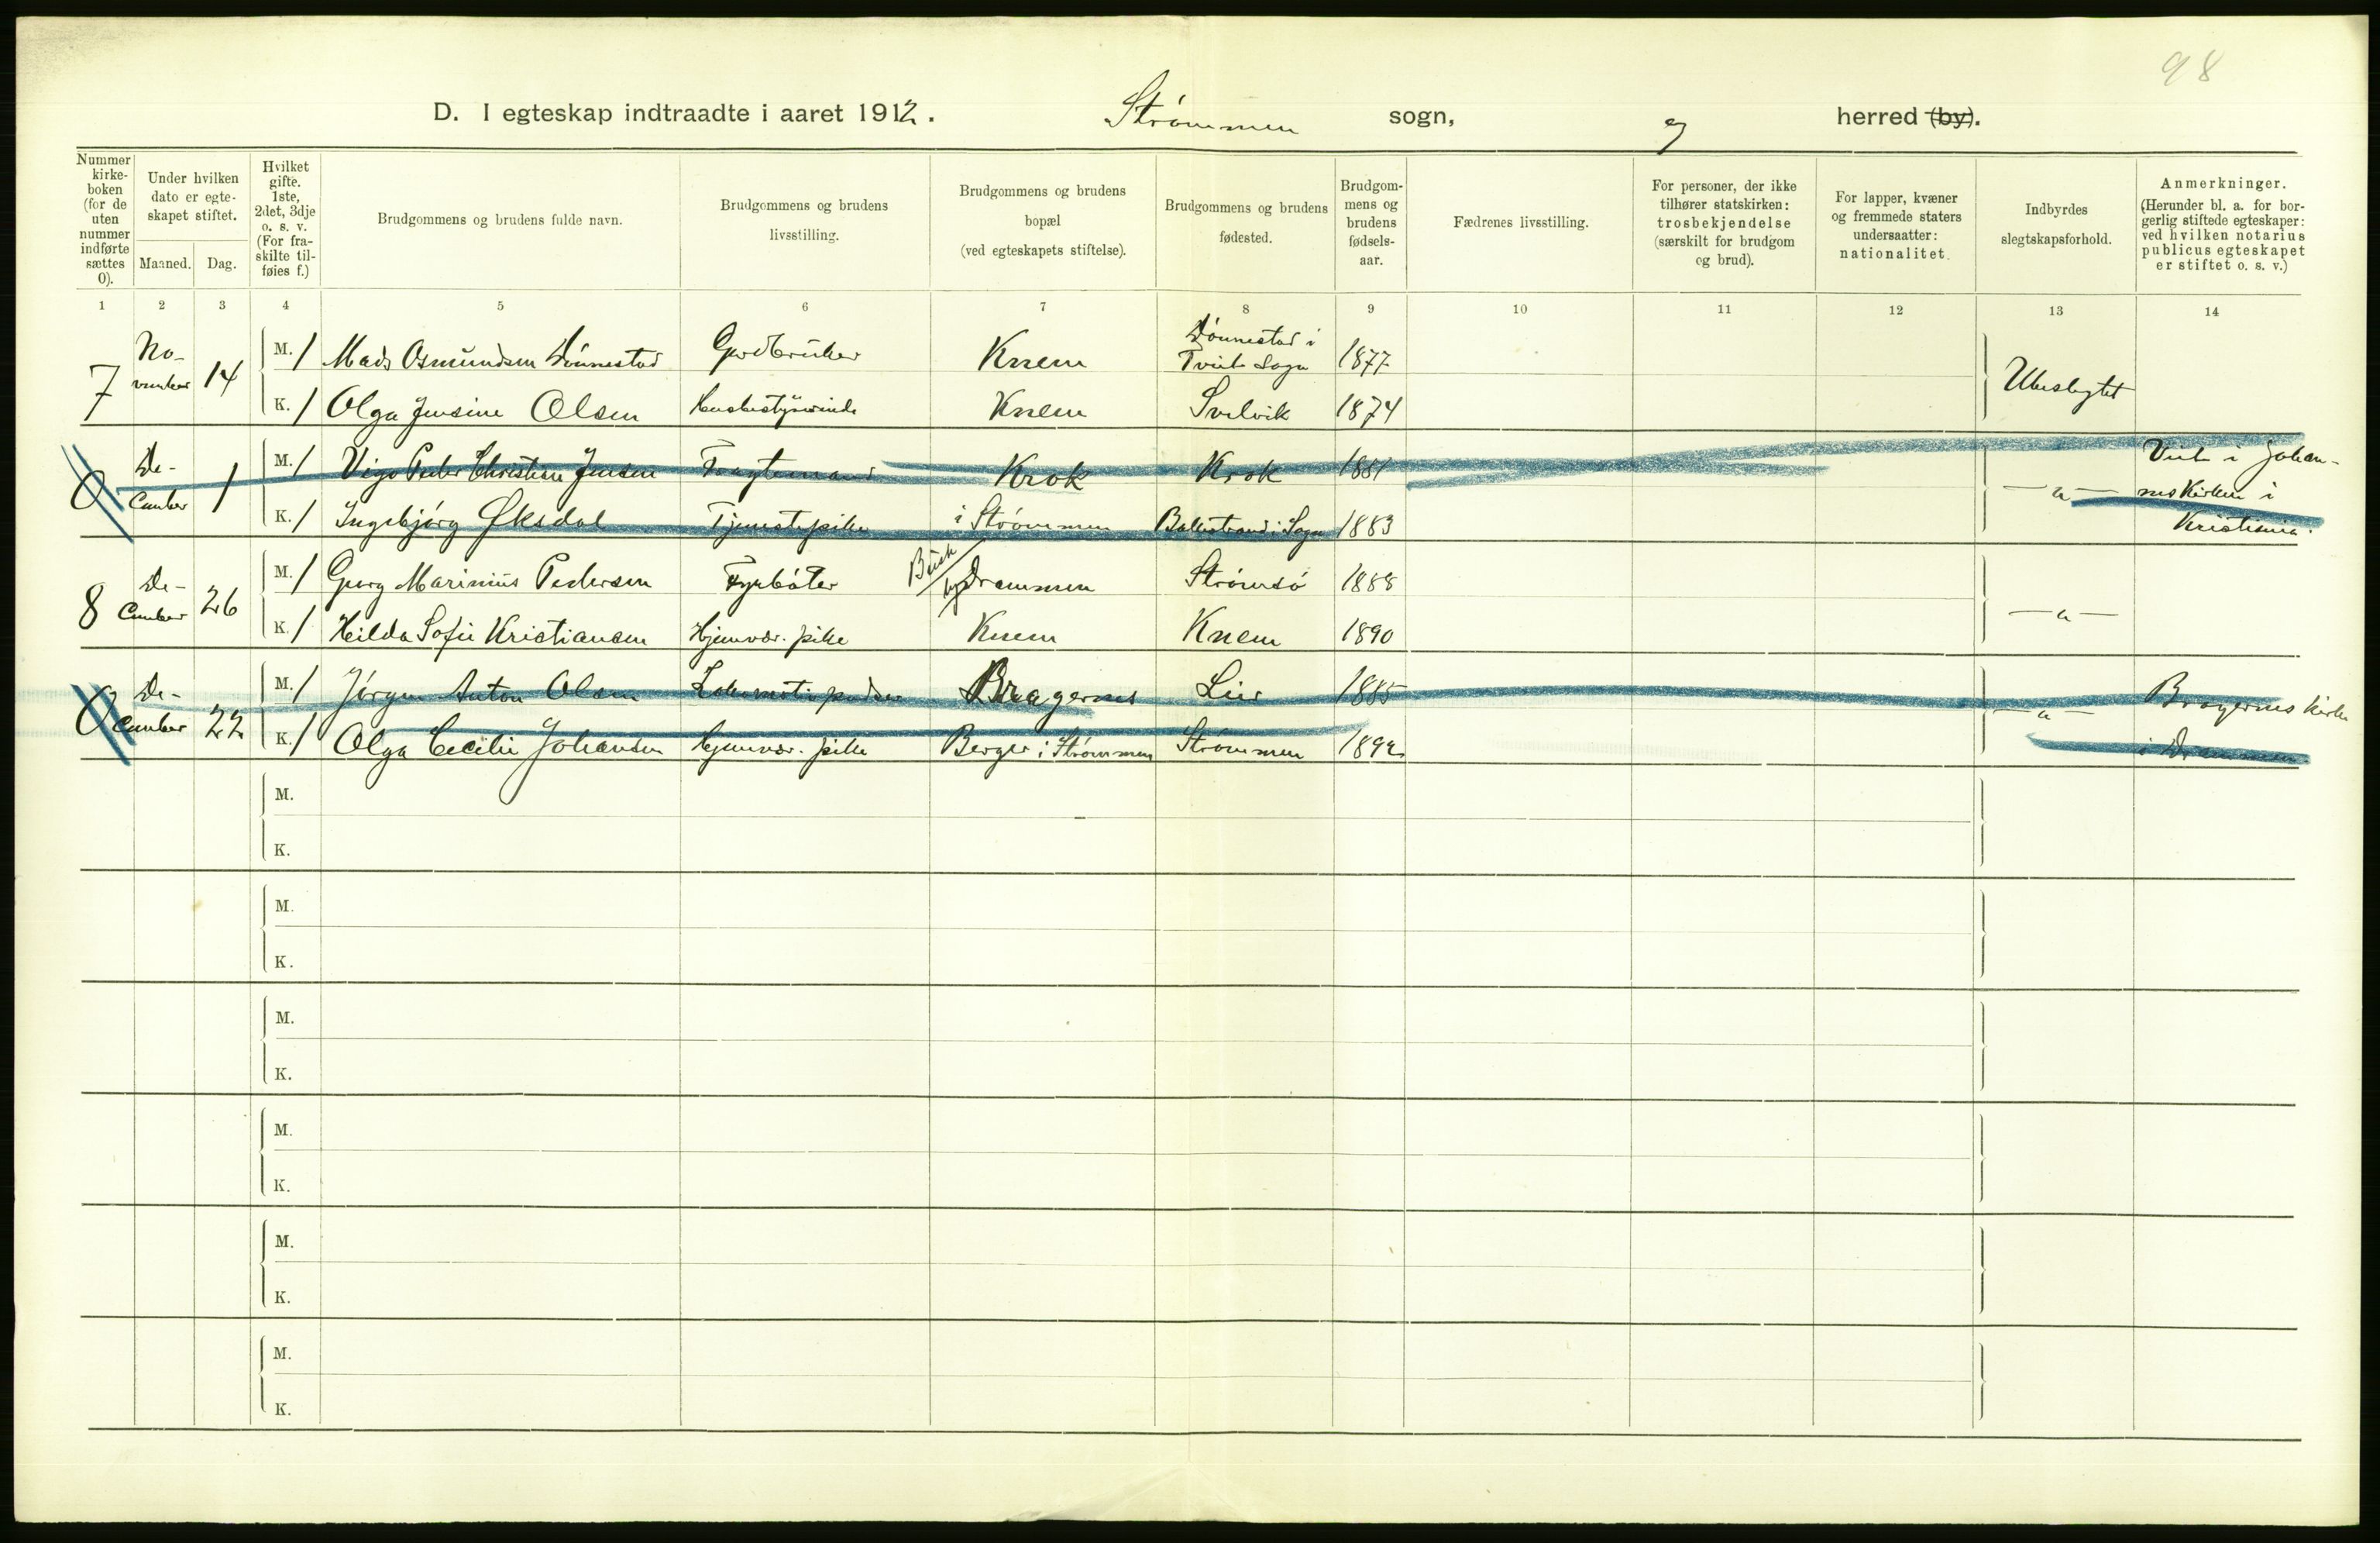 98
D. I egteskap indtraadte i aaret 1912. Strømmen sogn, og herred (by).
Nummer kirke-boken (for de uten nummer indførte sættes 0).
Under hvilken dato er egte-skapet stiftet.
Maaned. Dag.
Hvilket gifte. 1ste, 2det, 3dje o. s. v. (For fra-skilte til-føies f.)
Brudgommens og brudens fulde navn.
Brudgommens og brudens livsstilling.
Brudgommens og brudens bopæl (ved egteskapets stiftelse).
Brudgommens og brudens fødested.
Brudgom-mens og brudens fødsels-aar.
Fædrenes livsstilling.
For personer, der ikke tilhører statskirken: trosbekjendelse (særskilt for brudgom og brud).
For lapper, kvæner og fremmede staters undersaatter: nationalitet.
Indbyrdes slegtskapsforhold.
Anmerkninger. (Herunder bl. a. for bor-gerlig stiftede egteskaper: ved hvilken notarius publicus egteskapet er stiftet o. s. v.)
1 2 3 4 5 6 7 8 9 10 11 12 13 14
7 No-vember 14 M. 1 Mads Osmundsen Dønnestad Gardbruker Knem Dønnestad i Tveit Sogn 1877 Ubeslegtet
K. 1 Olga Jensine Olsen Husbestyrerinde Knem Svelvik 1874
0 De-cember 1 M. 1 Vigo Peder Christian Jensen Fragtemand Krok Krok 1881 — " — Viet i Johan-
nes Kirken i
K. 1 Ingebjørg Øksdal Tjenestepike i Strømmen Balestrand i Sogn 1883 Kristiania.
8 De-cember 26 M. 1 Georg Marinius Pedersen Fyrbøter Busk by Drammen Strømsø 1888 — " —
K. 1 Hilda Sofie Kristiansen Hjemvær. pike Knem Knem 1890
0 De-cember 22 M. 1 Jørgen Anton Olsen Lokomotivpudser Bragernes Lier 1885 — " — Bragernes Kirke
K. 1 Olga Cecilie Johansen Hjemvær. pike Berger i Strømmen Strømmen 1892 i Drammen.
M.
K.
M.
K.
M.
K.
M.
K.
M.
K.
M.
K.